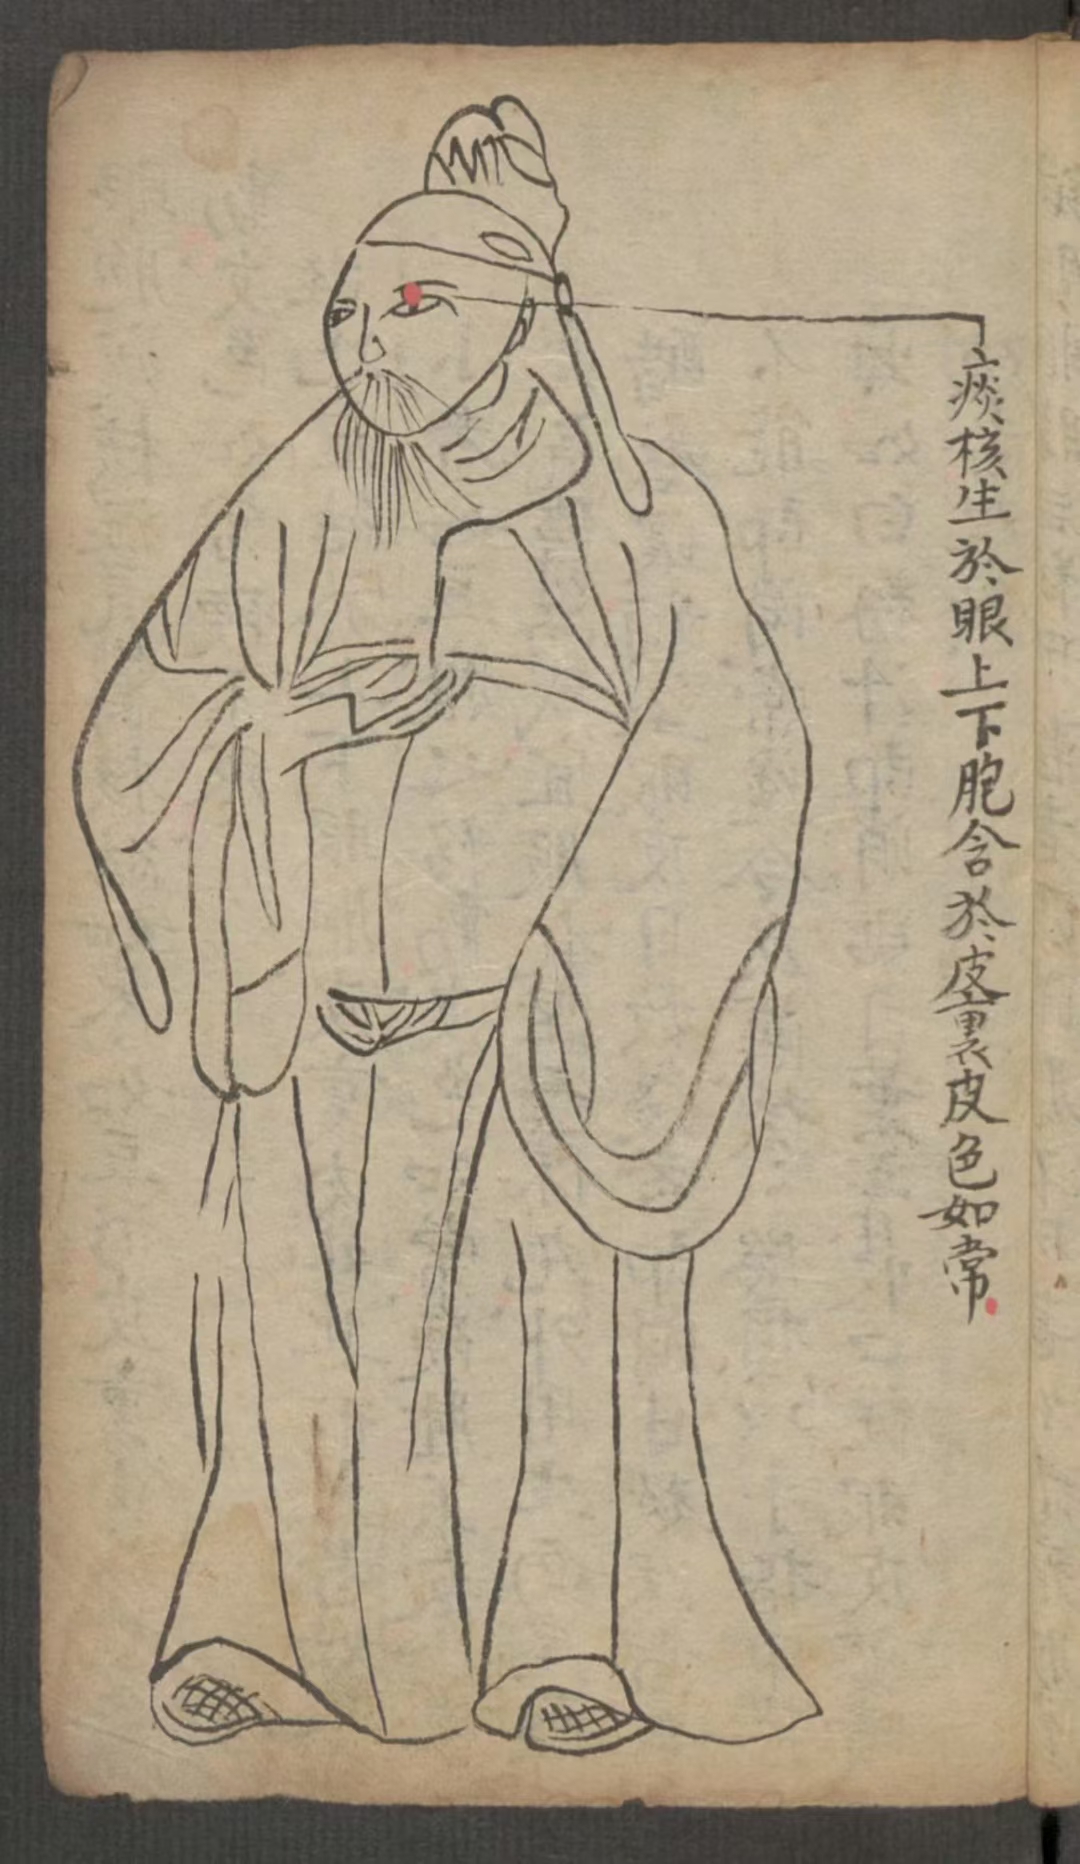 痰核生於眼上下胞含於皮裏皮色如常